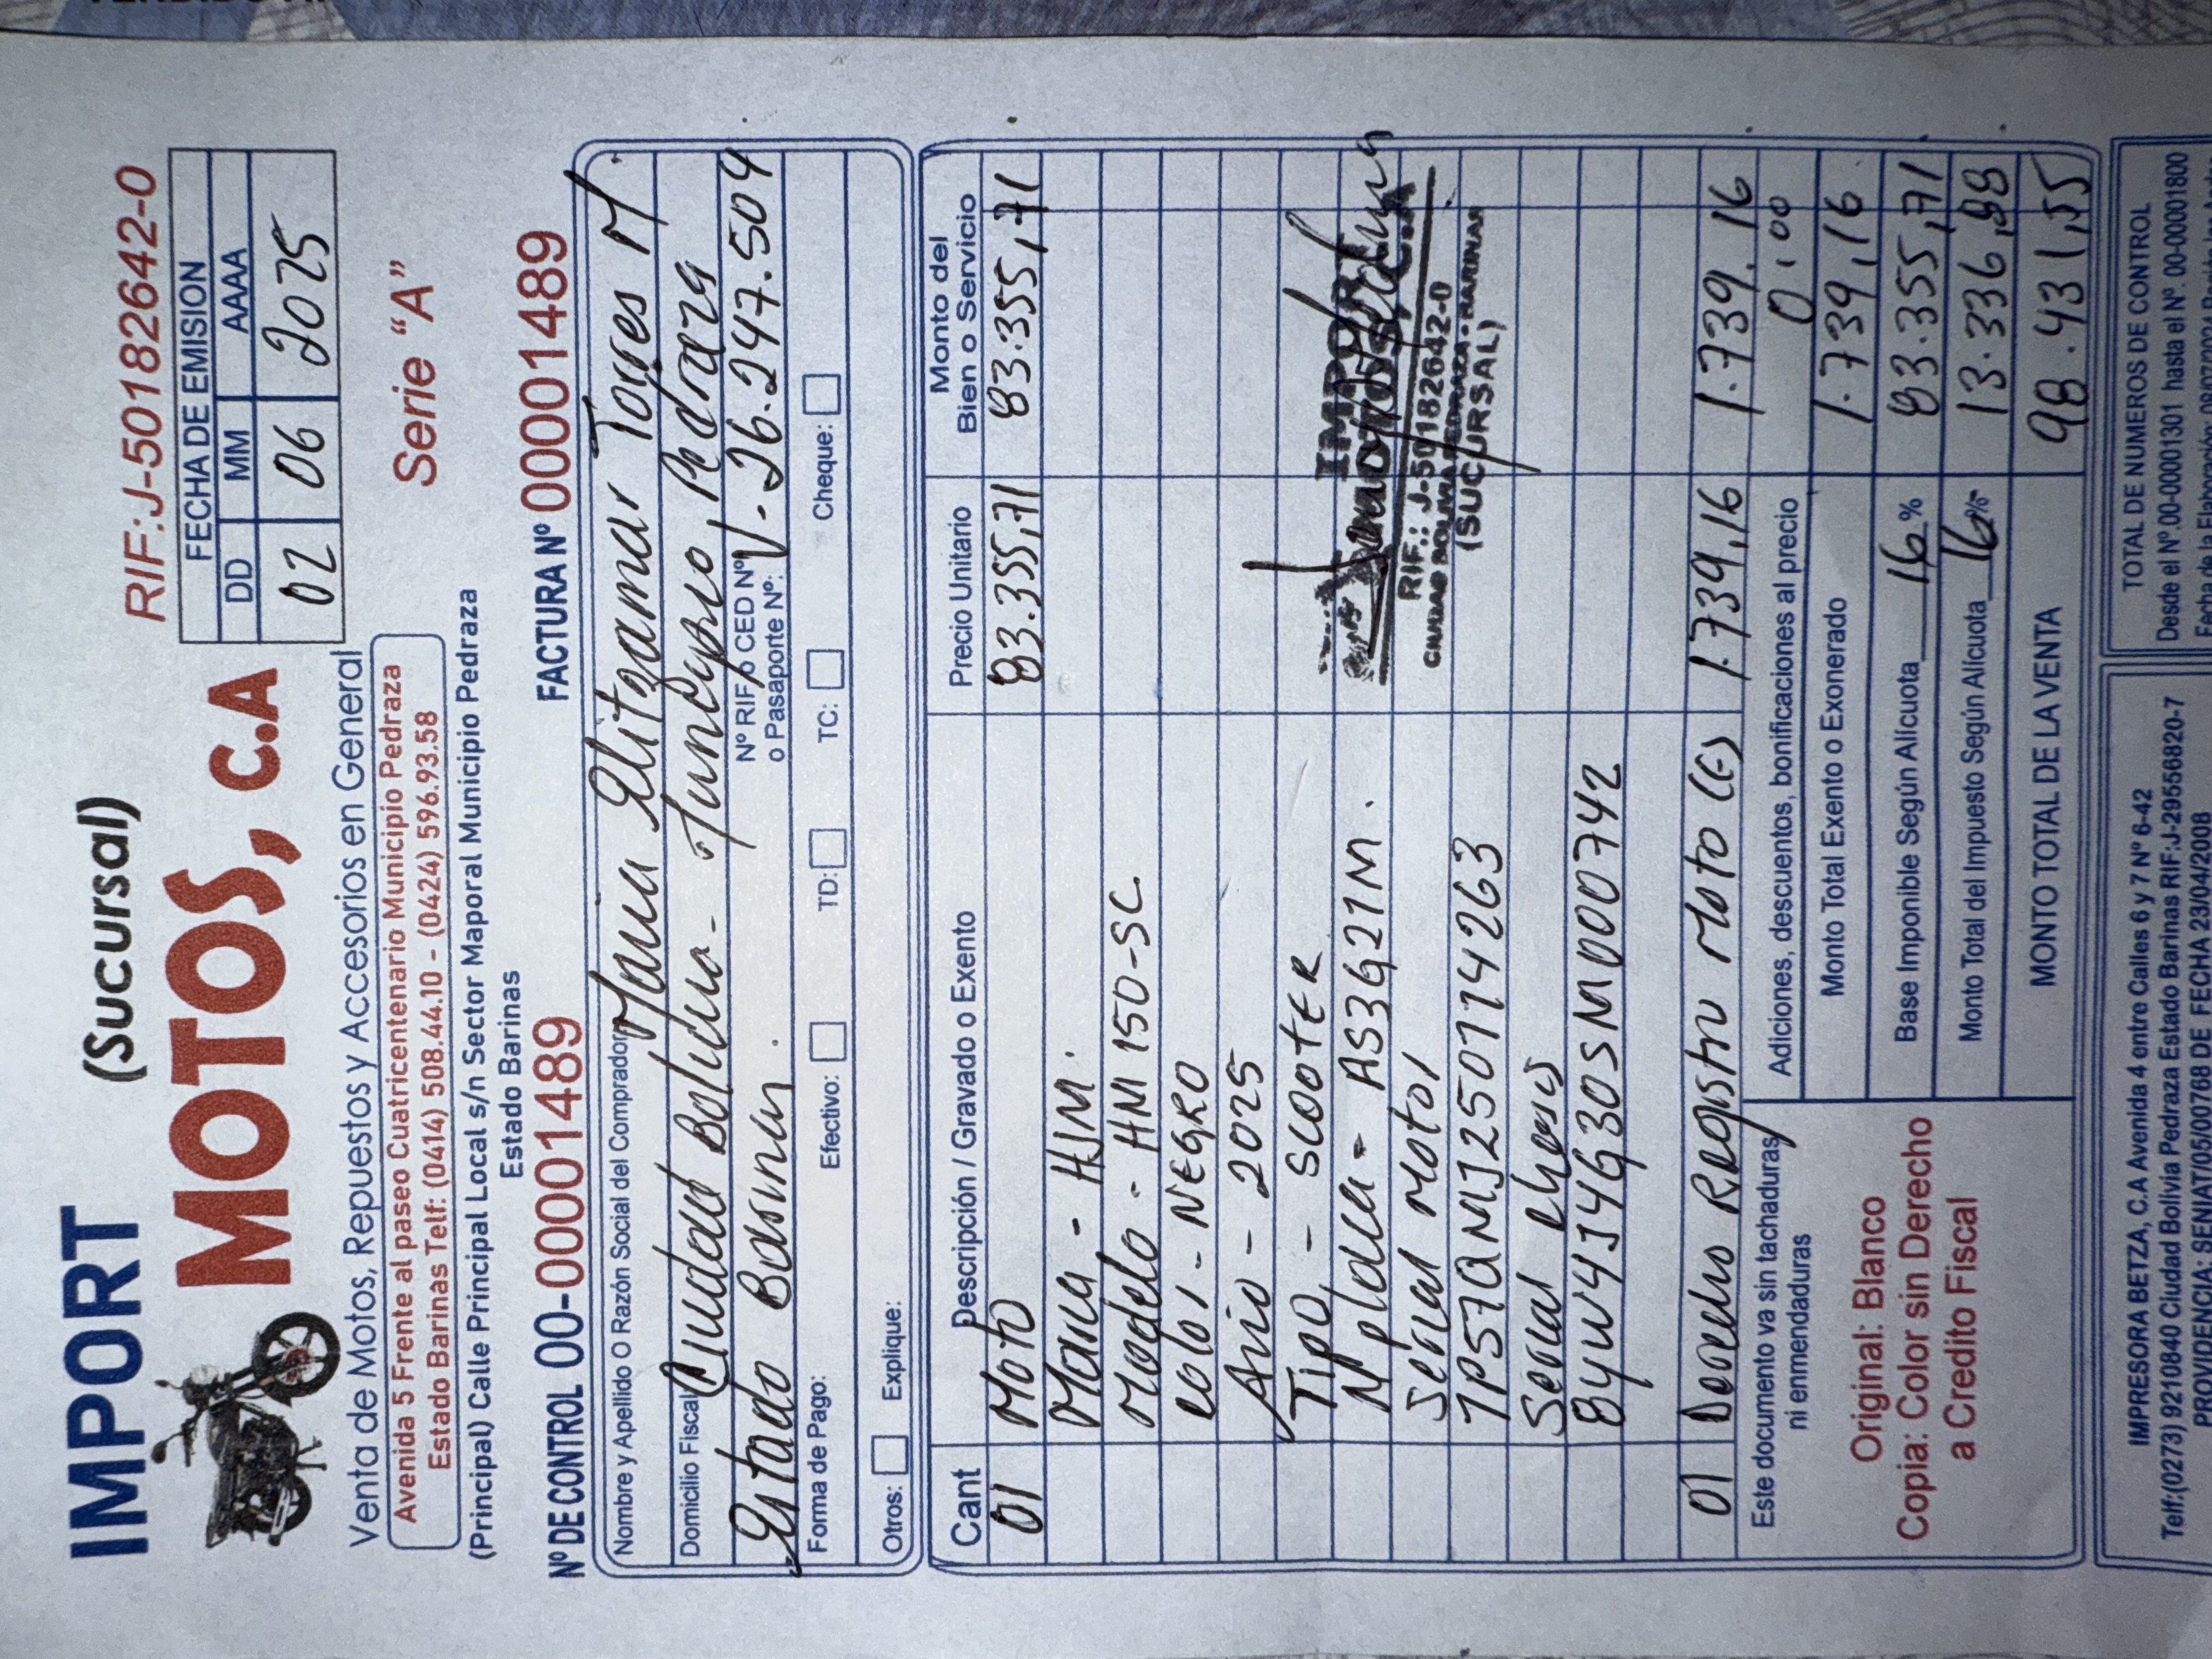 IMPORT (Sucursal)
MOTOS, C.A
RIF:J-50182642-0
FECHA DE EMISION
DD MM AAAA
02 06 2025
Venta de Motos, Repuestos y Accesorios en General
Avenida 5 Frente al paseo Cuatricentenario Municipio Pedraza
Estado Barinas Telf: (0414) 508.44.10 – (0424) 596.93.58
(Principal) Calle Principal Local s/n Sector Maporal Municipio Pedraza
Estado Barinas
Serie “A”
Nº DE CONTROL 00-00001489 FACTURA Nº 00001489
Nombre y Apellido O Razón Social del Comprador Maria Elitzamar Torres M.
Domicilio Fiscal Ciudad Bolivia - Municipio Pedraza
Estado Barinas. Nº RIF ó CED Nº o Pasaporte Nº: V-26.247.504
Forma de Pago: Efectivo: TD: TC: Cheque:
Otros: Explique:
Cant Descripción / Gravado o Exento Precio Unitario Monto del Bien o Servicio
01 Moto 83.355,71 83.355,71
Marca - HJM.
Modelo - HM 150-SC.
Color - NEGRO
Año - 2025
Tipo - SCOOTER
Nº placa - AS3G27M.
Serial Motor
1P57QMJ25071 4263
Serial Chasis
8YWYJ4G30SM000742
IMPORT
RIF.: J-50182642-0
CIUDAD BOLIVIA PEDRAZA - BARINAS
(SUCURSAL)
01 Derecho Registro Moto (E) 1.739,16 1.739.16
Este documento va sin tachaduras ni enmendaduras
Adiciones, descuentos, bonificaciones al precio 0,00
Monto Total Exento o Exonerado 1.739,16
Original: Blanco
Copia: Color sin Derecho
a Credito Fiscal
Base Imponible Según Alícuota 16 % 83.355,71
Monto Total del Impuesto Según Alícuota 16 % 13.336,98
MONTO TOTAL DE LA VENTA 98.431,55
IMPRESORA BETZA, C.A Avenida 4 entre Calles 6 y 7 Nº 6-42
Telf:(0273) 9210840 Ciudad Bolivia Pedraza Estado Barinas RIF:J-29556820-7
PROVIDENCIA: SENIAT/05/00768 DE FECHA 23/04/2008
TOTAL DE NUMEROS DE CONTROL
Desde el Nº.00-00001301 hasta el Nº. 00-00001800